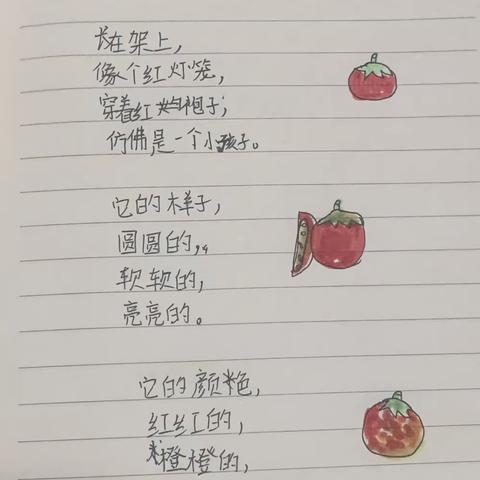 长在架上，
像个红灯笼，
穿着红袍子；
仿佛是一个小孩子。
它的样子，
圆圆的，
软软的，
亮亮的。
它的颜色，
红红的，
橙橙的，